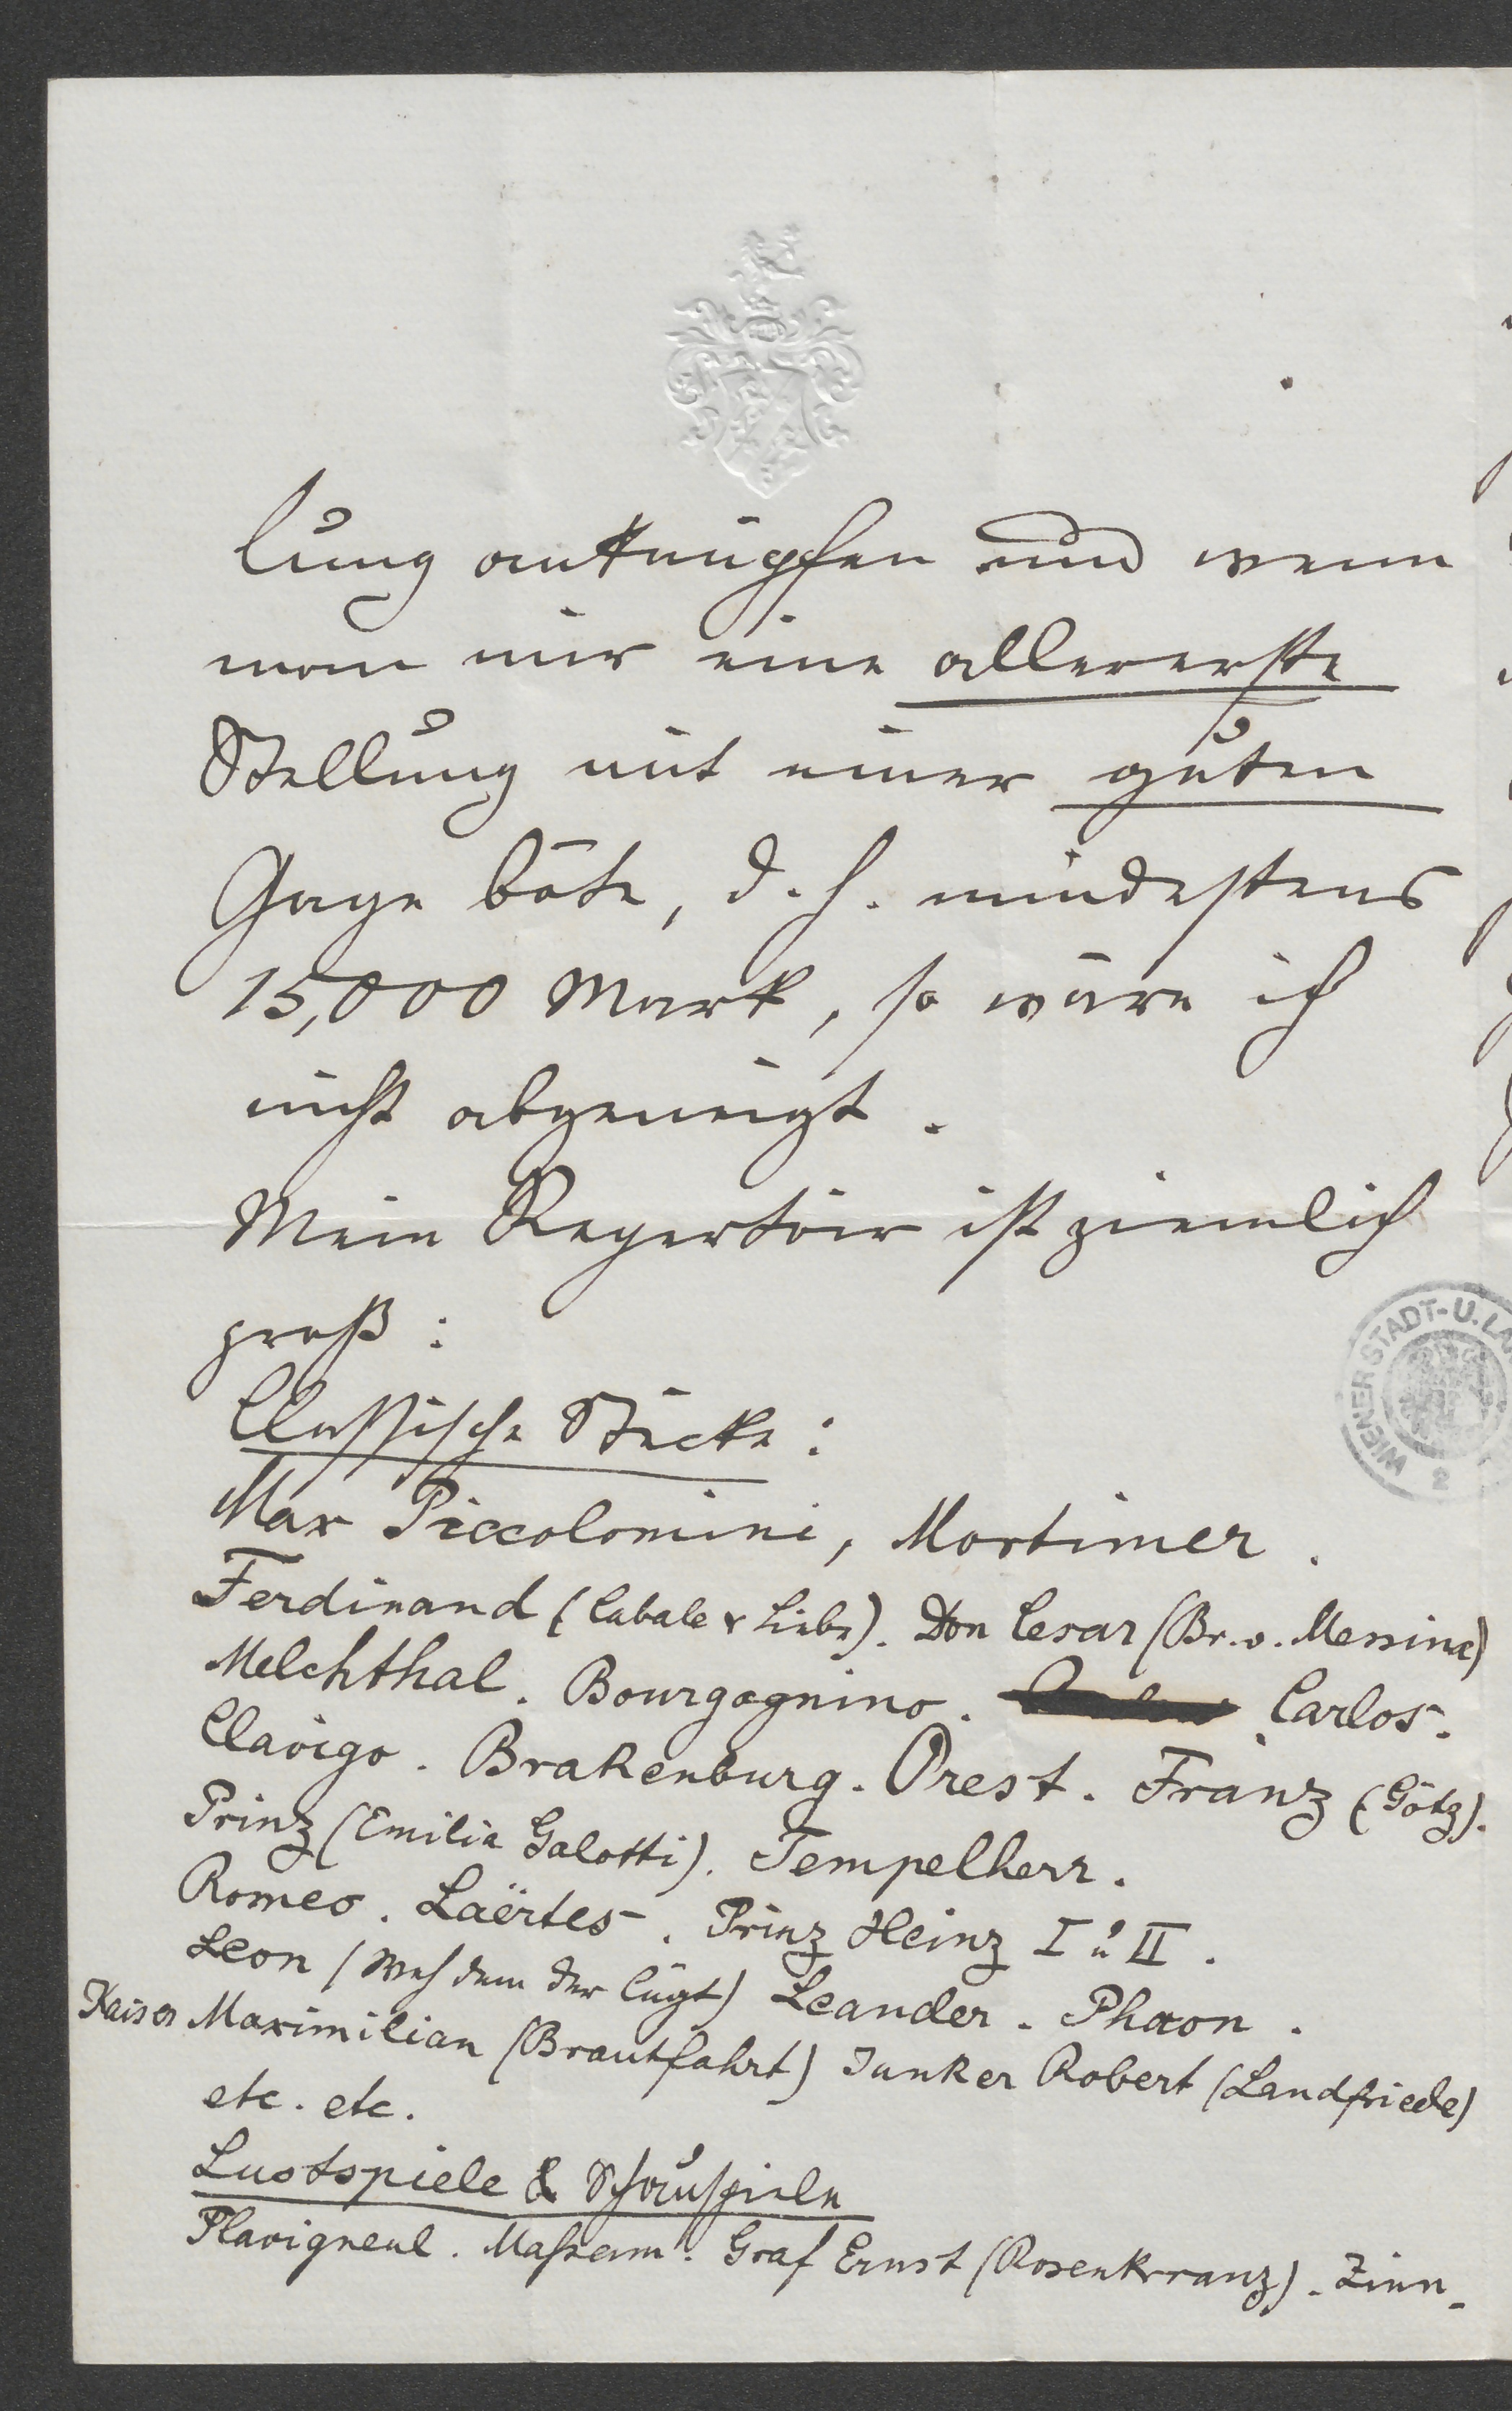 lung anknüpfen und wenn
man mir eine allererste
Stellung mit einer guten
Gage böte, d. h. mindestens
15,000 Mark, so wäre ich
nicht abgeneigt.
Mein Repertoir ist ziemlich
groß:
Classische Stücke:
Max Piccolomini, Mortimer.
Ferdinand (Cabale & Liebe). Don Cesar (Br. v. Messina)
Melchthal. Bourgognino. Carlos.
Clavigo. Brakenburg. Orest. Franz (Götz).
Prinz (Emilia Galotti). Tempelherr.
Romeo. Laërtes. Prinz Heinz I u II.
Leon (Weh dem der lügt) Leander. Phaon.
Kaiser Maximilian (Brautfahrt) Junker Robert (Landfriede)
etc. etc.
Lustspiele & Schauspiele
Flavigneul. Maßham. Graf Ernst (Rosenkrranz). Zinn-
WIENER STADT- U. LA
2